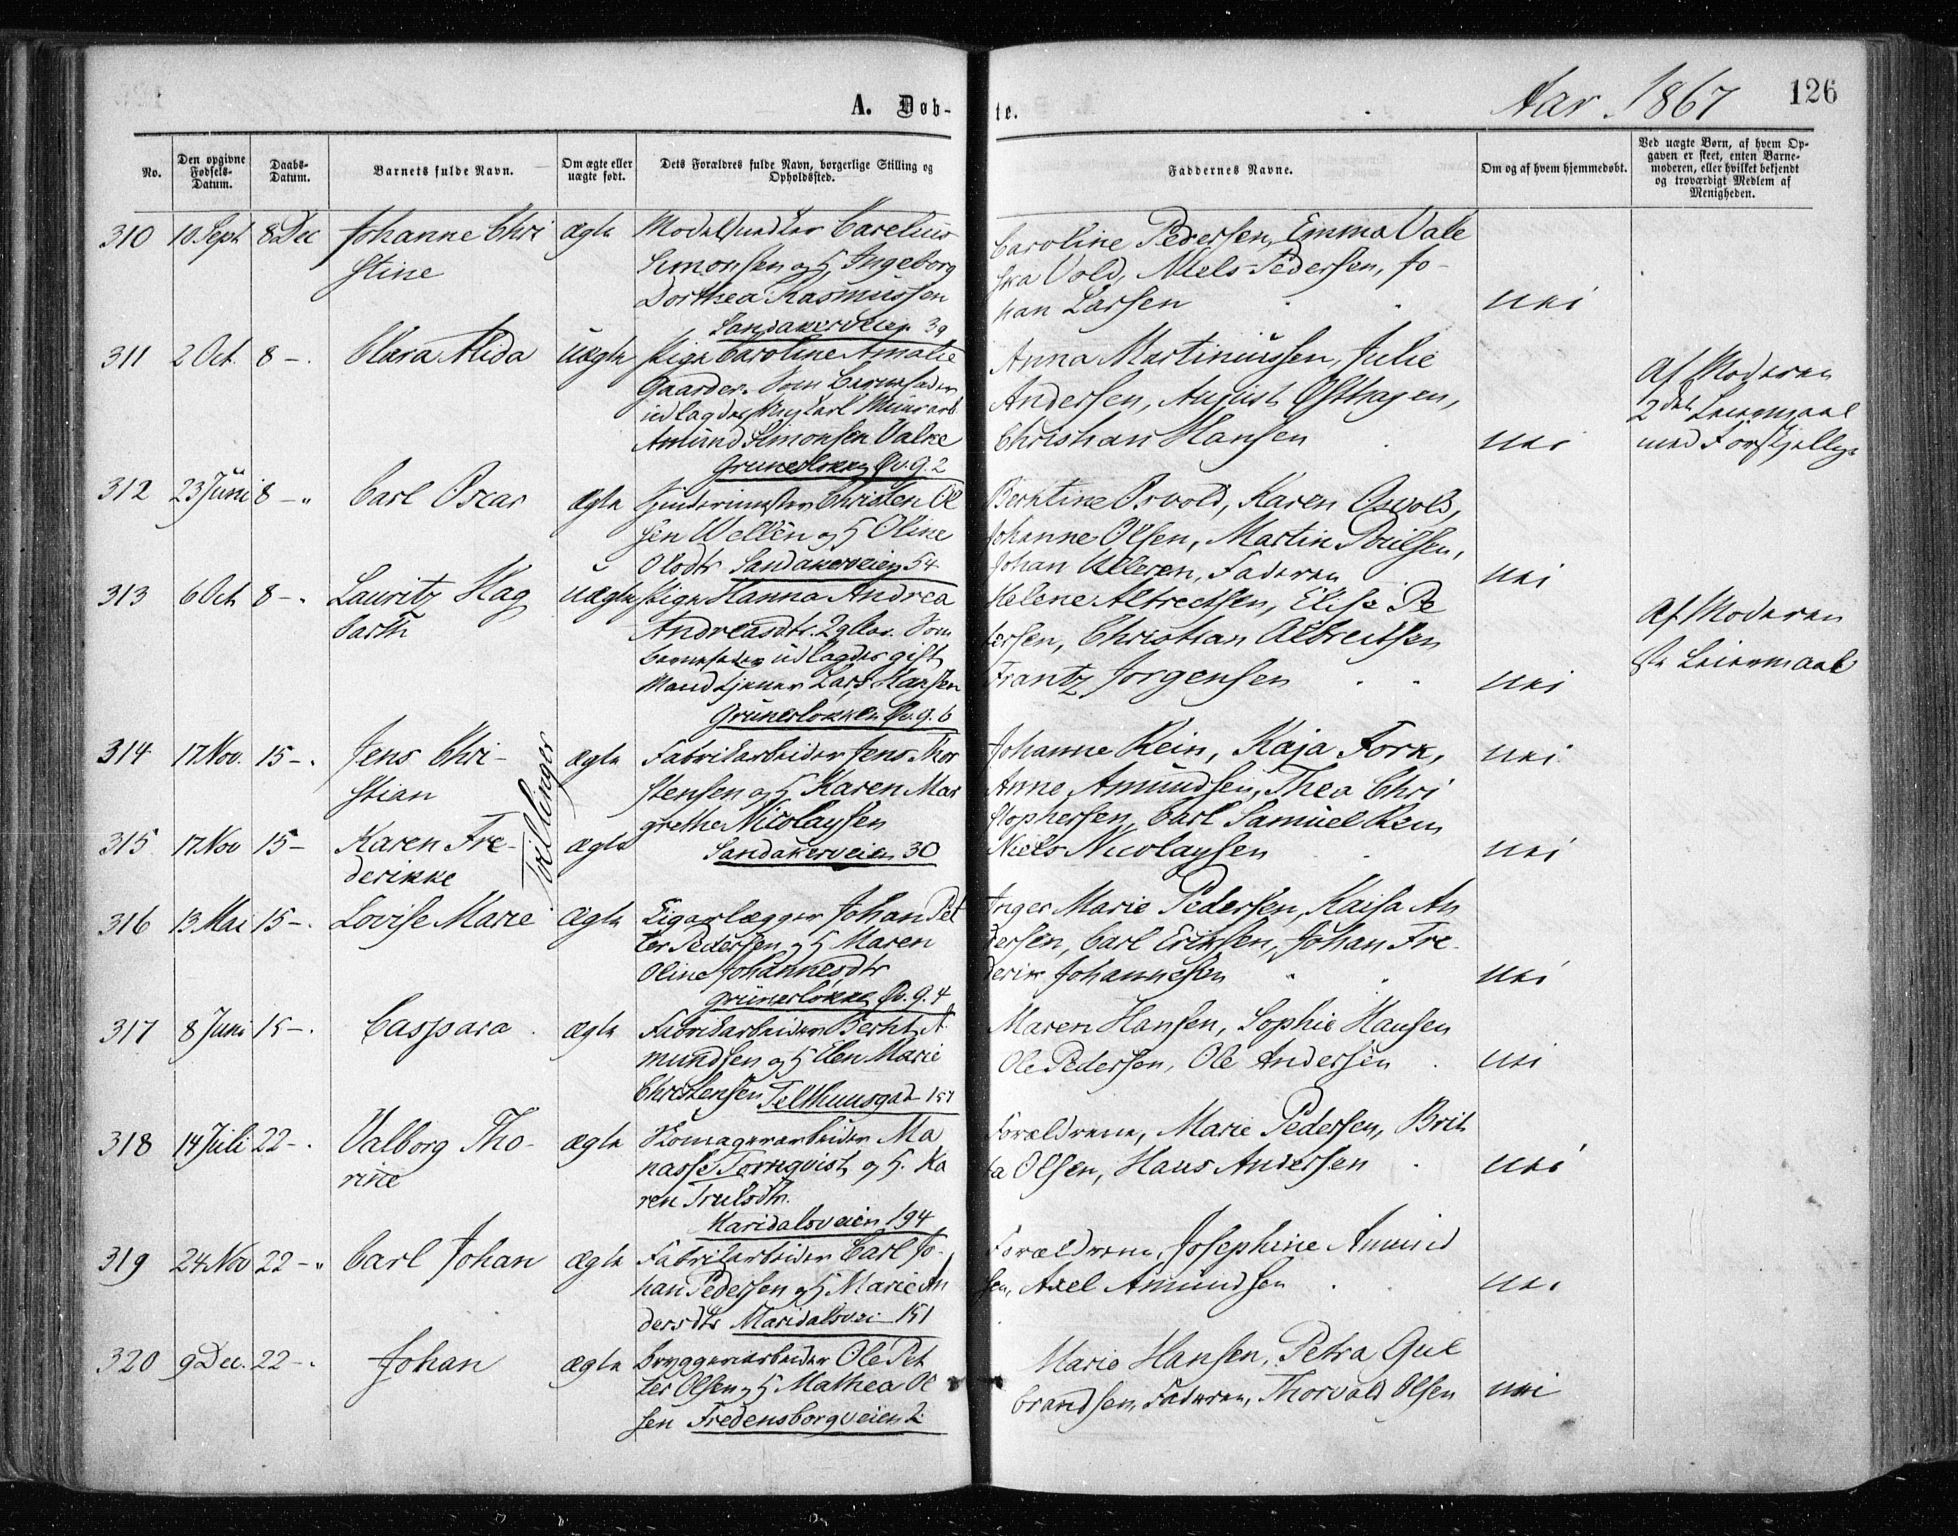 A. Døb-
te.
Aar 1867
126
No.
Den opgivne Fødsels-Datum.
Daabs-Datum.
Barnets fulde Navn.
Om ægte eller uægte født.
Dets Forældres fulde Navn, borgerlige Stilling og Opholdssted.
Faddernes Navne.
Om og af hvem hjemmedøbt.
Ved uægte Børn, af hvem Op-
gaven er skeet, enten Barne-
moderen, eller hvilket bekjendt
og troværdigt Medlem af
Menigheden.
310 10 Sept 8 Dec Johanne Chri ægte
stine
Carelius
Simonsen og H. Ingeborg
Dorthea Rasmussen
Sandakerveien 39
Caroline Pedersen, Emma Vale
ska Vold, Niels Pedersen, Jo-
han Larsen
nei
311 2 Oct. 8 -. Clara Alida uægte Pige Caroline Amalie
Gaarder. Som Barnefader
udlagdes Ungkarl Murarb.
Amund Simonsen Valne
Grünerløkken Øv. g. 2
Anna Martiniussen, Julie
Andersen, August Østhagen,
Christian Hansen
nei
Af Moderen
2det Leiermaal
med Forskjellige
312 23 Juni 8 -" Carl Oscar ægte Christen Ol
sen Wellén og H Oline
Olsdtr Sandakerveien 54
Berntine Osvold, Karen Osvold,
Johanne Olsen, Martin Poulsen,
Johan Faderen
nei
313 6 Oct 8 -. Lauritz Hag uægte Pige Hanna Andrea
barth
Andreasdtr. 29 Aar. Som
Barnefader udlagdes gift
Mand Tjener Lars Hansen
Grünerløkken Øv. g. 6
Helene Albrectsen, Elise Pe
tersen, Christian Albrectsen
Frantz Jørgensen
nei
Af Moderen
1ste Leiermaal
314 17 Nov. 15 -. Jens Chri- ægte Fabrikarbeider Jens Thor
stian
stensen og H Karen Mar
grethe Nicolaysen
Sandakerveien 30
Tvillinger
Johanne Rein, Kaja Fork,
nei
Anne Amundsen, Thea Chri
stophersen, Carl Samuel Rein
Niels Nicolaysen
nei
315 17 Nov 15 - Karen Fre- ægte
derikke
316 13 Mai 15 -. Lovise Marie ægte Sigarlægger Johan Pet
ter Pedersen og H Maren
Oline Johannesdtr
Grünerløkken Øv. g. 4
Inger Marie Pedersen, Kaisa An
dersen, Carl Eriksen, Johan Fre-
derik Johannesen
nei
317 8 Juni 15 -. Caspara ægte Fabrikarbeider Bernt A
mundsen og H Elen Marie
Christensen Telthuusgad 151
Maren Hansen, Sophie Hansen
Ole Pedersen, Ole Andersen
nei
318 14 Juli 22 -. Valborg Tho- ægte Skomagerarbeider Ma
rine
nasse Tornqvist og H. Ka
ren Trulsdtr.
Maridalsveien 194
Forældrene, Marie Pedersen, Brit
ta Olsen, Hans Andersen
nei
319 24 Nov 22 -" Carl Johan ægte Fabrikarbeider Carl Jo-
han Pedersen og H Marie An
dersdtr Maridalsvei 151
Forældrene, Josephine Amund
sen, Axel Amundsen
nei
320 9 Dec. 22 -. Johan ægte Bryggeriarbeider Ole Pet
ter Olsen og H Mathea Ol
sen Fredensborgveien 2
Marie Hansen, Petra Gul
brandsen, Faderen, Thorvald Olsen
nei